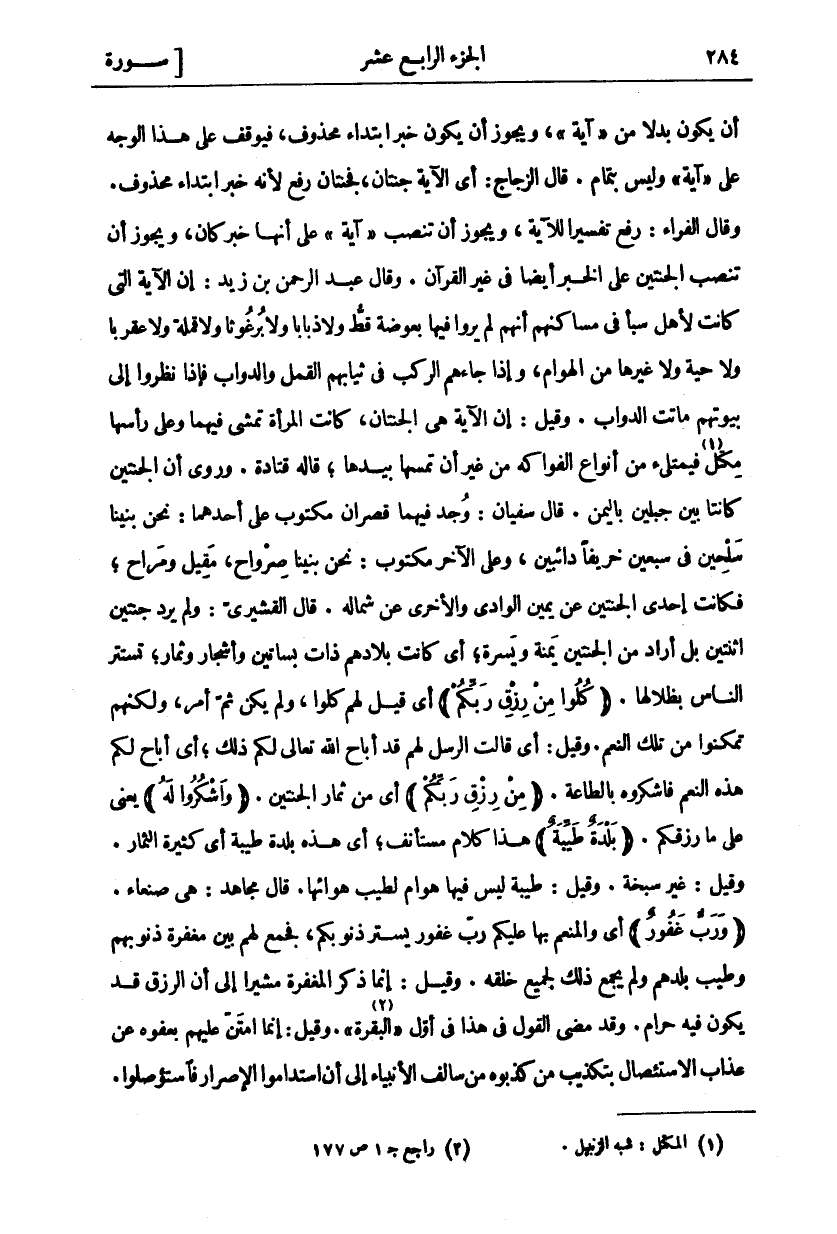 ٢٨٤ الجزء الرابع عشر [ سورة
أن يكون بدلا من «آية»، ويجوز أن يكون خبر ابتداء محذوف، فيوقف على هذا الوجه
على «آية» وليس بتمام . قال الزجاج: أى الآية جنتان، فجنتان رفع لأنه خبر ابتداء محذوف.
وقال الفراء : رفع تفسيرا للآية ، ويجوز أن تنصب «آية» على أنها خبر كان، ويجوز أن
تنصب الجنتين على الخبر أيضا فى غير القرآن . وقال عبد الرحمن بن زيد : إن الآية التى
كانت لأهل سبأ فى مساكنهم أنهم لم يروا فيها بعوضة قطُّ ولا ذبابا ولا بُرغُوثا ولا قملة ولا عقربا
ولا حية ولا غيرها من الهوام، وإذا جاءهم الركب فى ثيابهم القمل والدواب فإذا نظروا إلى
بيوتهم ماتت الدواب . وقيل : إن الآية هى الجنتان، كانت المرأة تمشى فيهما وعلى رأسها
مِكْتَل (١) فيمتلىء من أنواع الفواكه من غير أن تمسها بيدها ؛ قاله قتادة . وروى أن الجنتين
كانتا بين جبلين باليمن . قال سفيان : وُجد فيهما قصران مكتوب على أحدهما : نحن بنينا
سَلْحِين فى سبعين خريفاً دائبين ، وعلى الآخر مكتوب : نحن بنينا صِرْواح، مَقِيل ومَراح ؛
فكانت إحدى الجنتين عن يمين الوادى والأخرى عن شماله . قال القشيرىّ : ولم يرد جنتين
اثنتين بل أراد من الجنتين يَمنة ويَسرة؛ أى كانت بلادهم ذات بساتين وأشجار وثمار؛ تستتر
الناس بظلالها . ﴿ كُلُوا مِنْ رِزْقِ رَبِّكُمْ ﴾ أى قيل لهم كلوا ، ولم يكن ثَمّ أمر، ولكنهم
تمكنوا من تلك النعم. وقيل: أى قالت الرسل لهم قد أباح الله تعالى لكم ذلك ؛ أى أباح لكم
هذه النعم فاشكروه بالطاعة . ﴿ مِنْ رِزْقِ رَبِّكُمْ ﴾ أى من ثمار الجنتين . ﴿ وَاشْكُرُوا لَهُ ﴾ يعنى
على ما رزقكم . ﴿ بَلْدَةٌ طَيِّبَةٌ ﴾ هذا كلام مستأنف؛ أى هذه بلدة طيبة أى كثيرة الثمار .
وقيل : غير سبخة . وقيل : طيبة ليس فيها هوام لطيب هوائها. قال مجاهد : هى صنعاء .
﴿ وَرَبٌّ غَفُورٌ ﴾ أى والمنعم بها عليكم ربّ غفور يستر ذنوبكم، فجمع لهم بين مغفرة ذنوبهم
وطيب بلدهم ولم يجمع ذلك لجميع خلقه . وقيل : إنما ذكر المغفرة مشيرا إلى أن الرزق قد
يكون فيه حرام. وقد مضى القول فى هذا فى أوّل «البقرة» (٢) . وقيل: إنما امتنّ عليهم بعفوه عن
عذاب الاستئصال بتكذيب من كذبوه من سالف الأنبياء إلى أن استداموا الإصرار فآستؤصلوا.
(١) المكتل : شبه الزنبيل . (٢) راجع جـ ١ ص ١٧٧